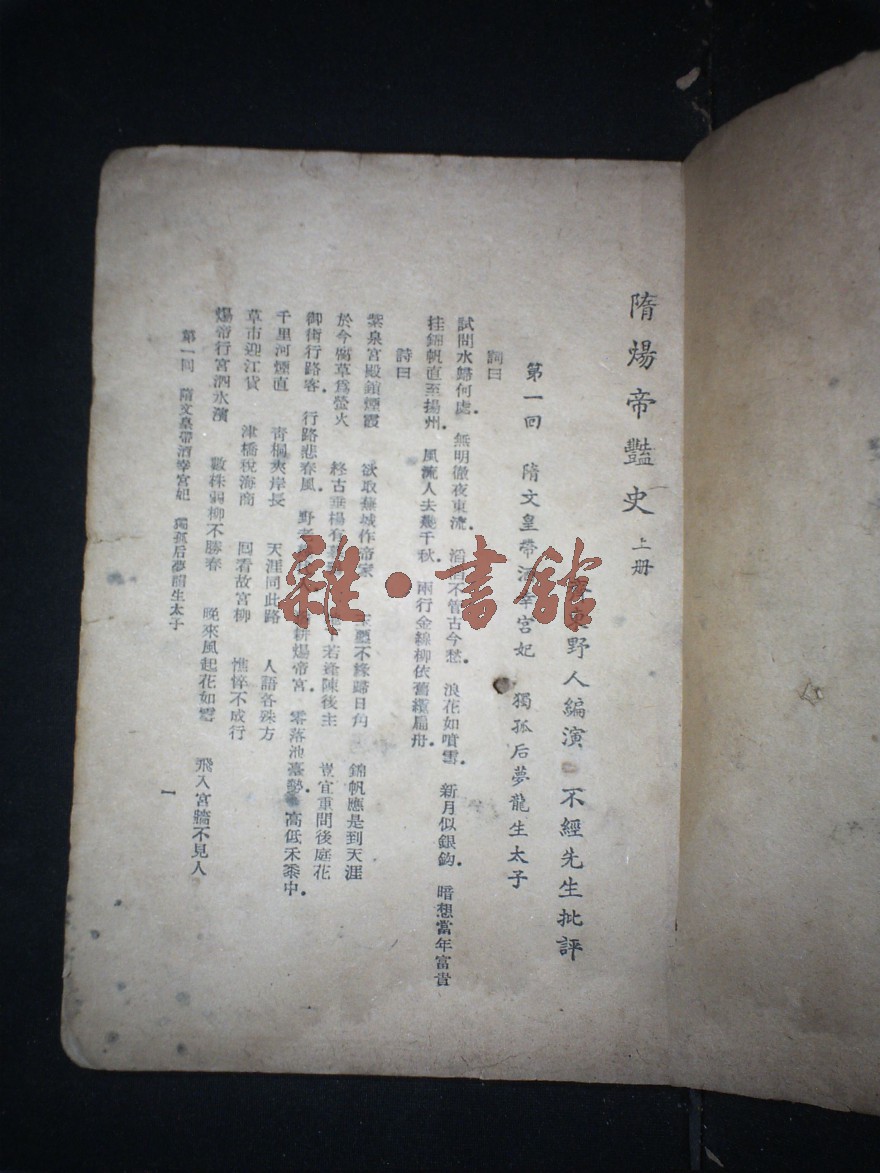 隋煬帝豔史 上册
東野人編演 不經先生批評
第一回 隋文皇帶酒幸宮妃 獨孤后夢龍生太子
詞曰
試問水歸何處．無明徹夜東流．滔滔不管古今愁．浪花如噴雪．新月似銀鈎．暗想當年富貴
挂錦帆直至揚州．風流人去幾千秋．兩行金線柳依舊纜扁舟．
詩曰
紫泉宮殿鎖煙霞 欲取蕪城作帝家 玉璽不緣歸日角 錦帆應是到天涯
於今腐草爲螢火 終古垂楊有 下若逢陳後主 豈宜重問後庭花
御街行路客．行路悲春風．野老 耕煬帝宮．零落池臺勢．高低禾黍中．
千里河煙直 青桐夾岸長 天涯同此路 人語各殊方
草市迎江貨 津橋稅海商 回看故宮柳 憔悴不成行
煬帝行宮泗水濱 數株弱柳不勝春 晚來風起花如雪 飛入宮牆不見人
第一回 隋文皇帶酒幸宮妃 獨孤后夢龍生太子
一
雜·書館